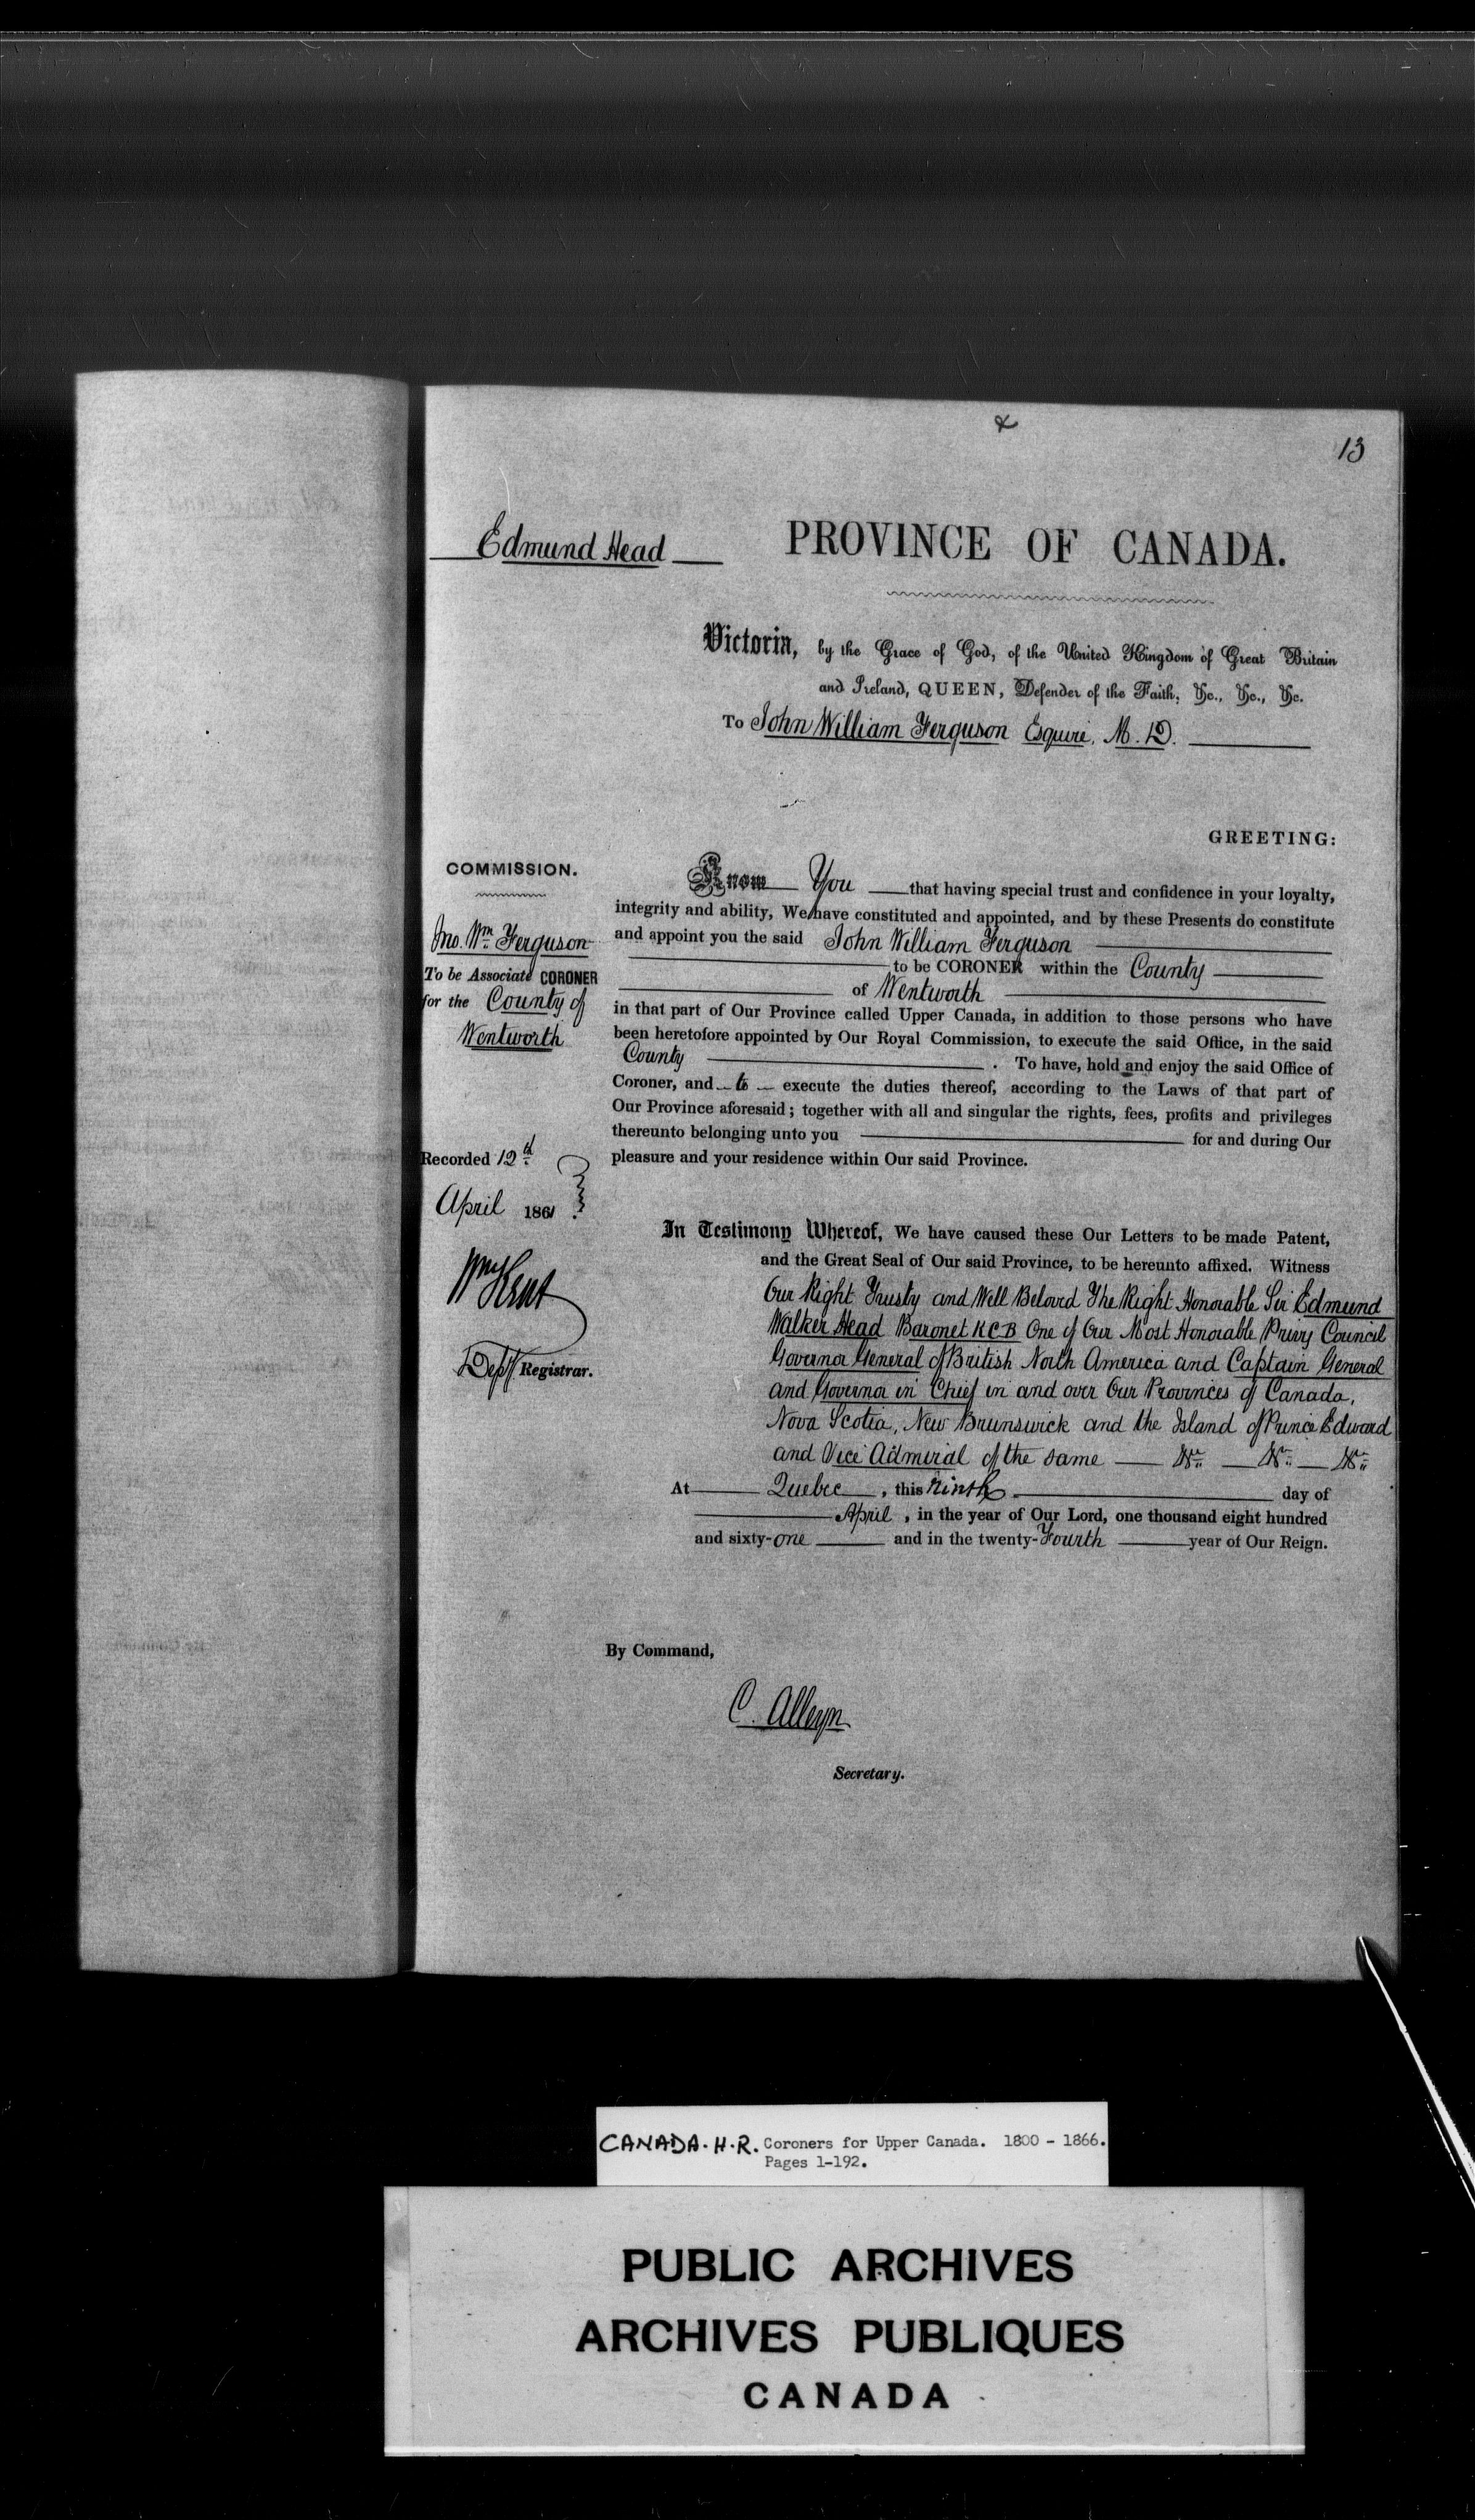 13
Edmund Head
PROVINCE OF CANADA.
Victoria, by the Grace of God, of the United Kingdom of Great Britain
and Ireland, QUEEN, Defender of the Faith, &c., &c., &c.
To John William Ferguson Esquire, M.D.
GREETING:
COMMISSION.
Jno. Wm. Ferguson
To be Associate CORONER
for the County of
Wentworth
Recorded 12th
April 1861.
Wm Kent
Depy Registrar.
Know You that having special trust and confidence in your loyalty,
integrity and ability, We have constituted and appointed, and by these Presents do constitute
and appoint you the said John William Ferguson
to be CORONER within the County
of Wentworth
in that part of Our Province called Upper Canada, in addition to those persons who have
been heretofore appointed by Our Royal Commission, to execute the said Office, in the said
County . To have, hold and enjoy the said Office of
Coroner, and to execute the duties thereof, according to the Laws of that part of
Our Province aforesaid; together with all and singular the rights, fees, profits and privileges
thereunto belonging unto you for and during Our
pleasure and your residence within Our said Province.
In Testimony Whereof, We have caused these Our Letters to be made Patent,
and the Great Seal of Our said Province, to be hereunto affixed. Witness
Our Right Trusty and Well Beloved The Right Honorable Sir Edmund
Walker Head Baronet K.C.B One of Our Most Honorable Privy Council
Governor General of British North America and Captain General
and Governor in Chief in and over Our Provinces of Canada,
Nova Scotia, New Brunswick and the Island of Prince Edward
and Vice Admiral of the same &c. &c. &c.
At Quebec, this Ninth day of
April, in the year of Our Lord, one thousand eight hundred
and sixty-one and in the twenty-Fourth year of Our Reign.
By Command,
C. Alleyn
Secretary.
CANADA. H.R. Coroners for Upper Canada. 1800 - 1866.
Pages 1-192.
PUBLIC ARCHIVES
ARCHIVES PUBLIQUES
CANADA